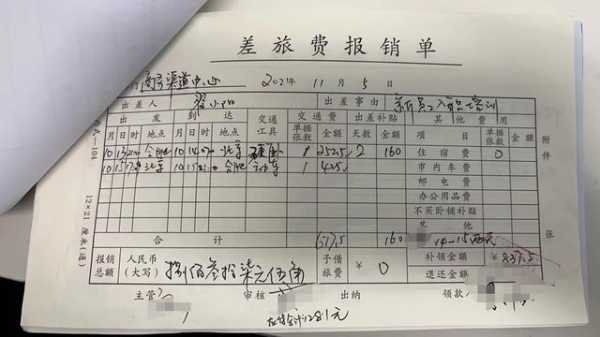 差旅费报销单
商务渠道中心 2021年11月5日
出差人 出差事由 新员工入职培训
出发 到达 交通工具 交通费 出差补贴 其他费用
月 日 时 地点 月 日 时 地点 单据张数 金额 天数 金额 项目 单据张数 金额
10 13 合肥 10 14 北京 硬卧 1 252.5 2 160 住宿费 0
10 15 北京 10 15 合肥 1 425 市内车费
邮电费
办公用品费
不买卧铺补贴
其他
合计 677.5 160 14-15两天
报销总额 人民币(大写) 捌佰叁拾柒元伍角 予借旅费 ¥ 0 补领金额 ¥837.5
退还金额
主管 审核 出纳 领款
附件 张
A—104
12×21 厘米(通)